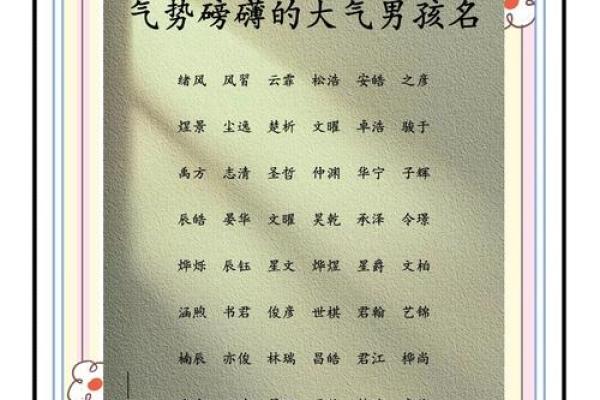 气势磅礴的大气男孩名
绪风 风習 云霏 松浩 安皓 之彦
煜景 尘逸 楚析 文曜 卓浩 骏于
禹方 志清 圣哲 仲渊 华宁 子辉
辰皓 晏华 文曜 吴乾 承泽 令璟
烨烁 辰钰 星文 烨煜 星爵 文柏
涵煦 书君 俊彦 世棋 君翰 艺锦
楠辰 亦俊 林瑞 昌皓 君江 桦尚